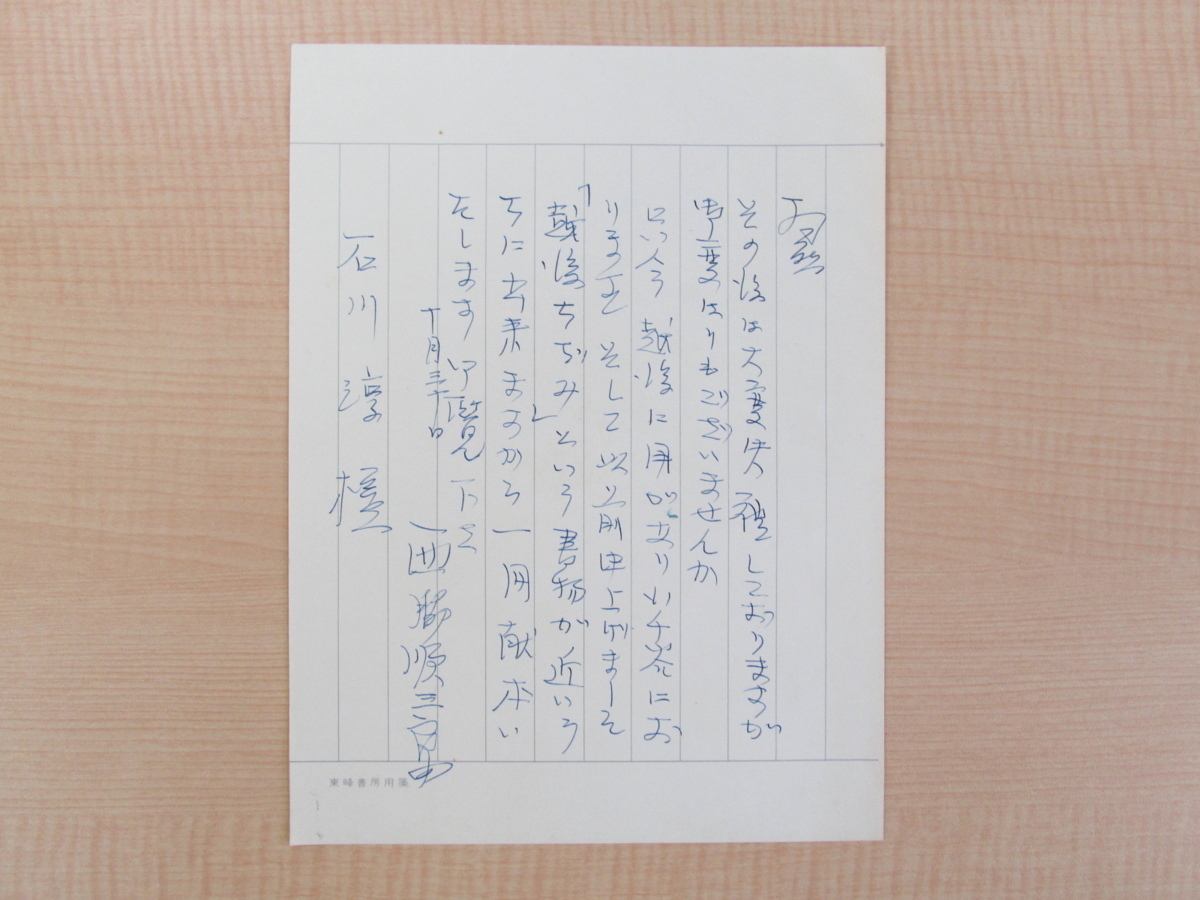 拝啓
その後は大変失礼しておりますが
御変はりもございませんか
只今越後に用があり小千谷にお
ります そして以前申上げました
「越後ちぢみ」という書物が近いう
ちに出来ますから一冊献本い
たします 御覧下さい
十月三十日
西脇順三郎
石川淳様
東峰書房用箋